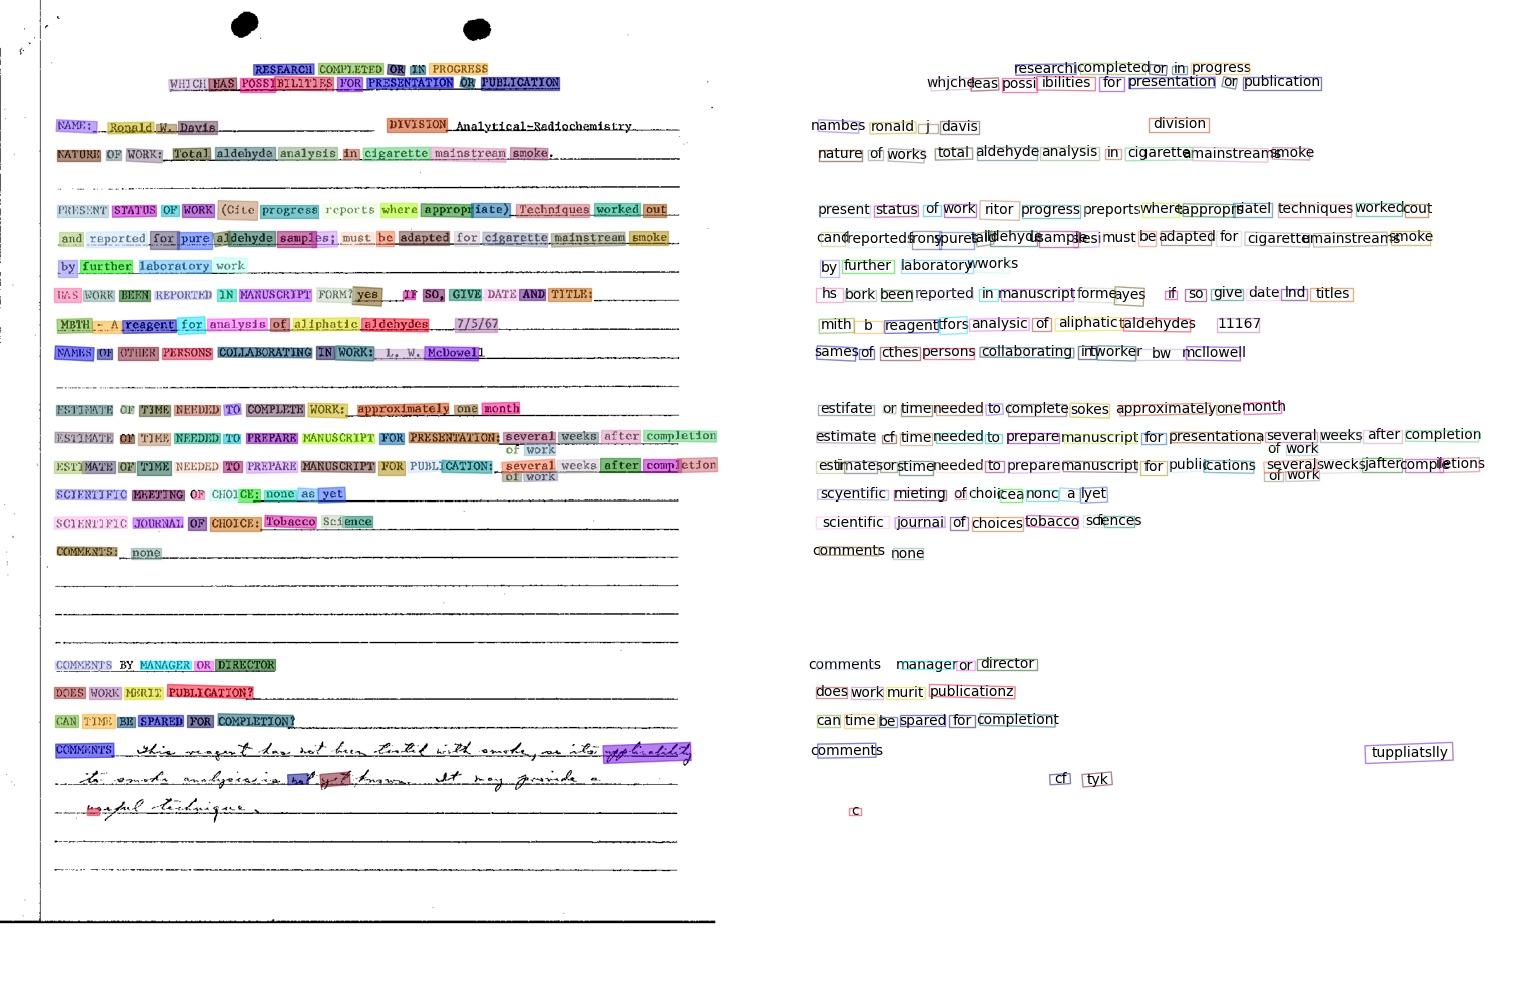 RESEARCH COMPLETED OR IN PROGRESS
WHICH HAS POSSIBILITIES FOR PRESENTATION OR PUBLICATION
NAME: Ronald W. Davis DIVISION Analytical-Radiochemistry
NATURE OF WORK: Total aldehyde analysis in cigarette mainstream smoke.
PRESENT STATUS OF WORK (Cite progress reports where appropriate) Techniques worked out
and reported for pure aldehyde samples; must be adapted for cigarette mainstream smoke
by further laboratory work
HAS WORK BEEN REPORTED IN MANUSCRIPT FORM? yes IF SO, GIVE DATE AND TITLE:
MBTH - A reagent for analysis of aliphatic aldehydes 7/5/67
NAMES OF OTHER PERSONS COLLABORATING IN WORK: L. W. McDowell
ESTIMATE OF TIME NEEDED TO COMPLETE WORK: approximately one month
ESTIMATE OF TIME NEEDED TO PREPARE MANUSCRIPT FOR PRESENTATION: several weeks after completion
of work
ESTIMATE OF TIME NEEDED TO PREPARE MANUSCRIPT FOR PUBLICATION: several weeks after completion
of work
SCIENTIFIC MEETING OF CHOICE: none as yet
SCIENTIFIC JOURNAL OF CHOICE: Tobacco Science
COMMENTS: none
COMMENTS BY MANAGER OR DIRECTOR
DOES WORK MERIT PUBLICATION?
CAN TIME BE SPARED FOR COMPLETION?
COMMENTS This reagent has not been tested with smoke, so its applicability
to smoke analysis is not yet known. It may provide a
useful technique.
researchi completed or in progress
whjche eas possi ibilities for presentation or publication
nambes ronald j davis division
nature of works total aldehyde analysis in cigarette amainstreams smoke
present status of work ritor progress preports where tappropris iatel techniques worked out
cand reporteds frony spuret aldehyde usample lesi must be adapted for cigarette umainstreams smoke
by further laboratory wworks
hs bork been reported in manuscript forme ayes if so give date lnd titles
mith b reagent tfors analysic of aliphatic taldehydes 11167
sames of cthes persons collaborating in tworker bw mcllowell
estifate or time needed to complete sokes approximately one month
estimate cf time needed to prepare manuscript for presentationa several weeks after completion
of work
estimates ors time needed to prepare manuscript for public cations severals weeks jafter comple letions
of work
scyentific mieting of choi cea nonc a lyet
scientific journai of choices tobacco sci fences
comments none
comments manager or director
does work murit publicationz
can time be spared for completiont
comments tuppliatslly
cf tyk
c